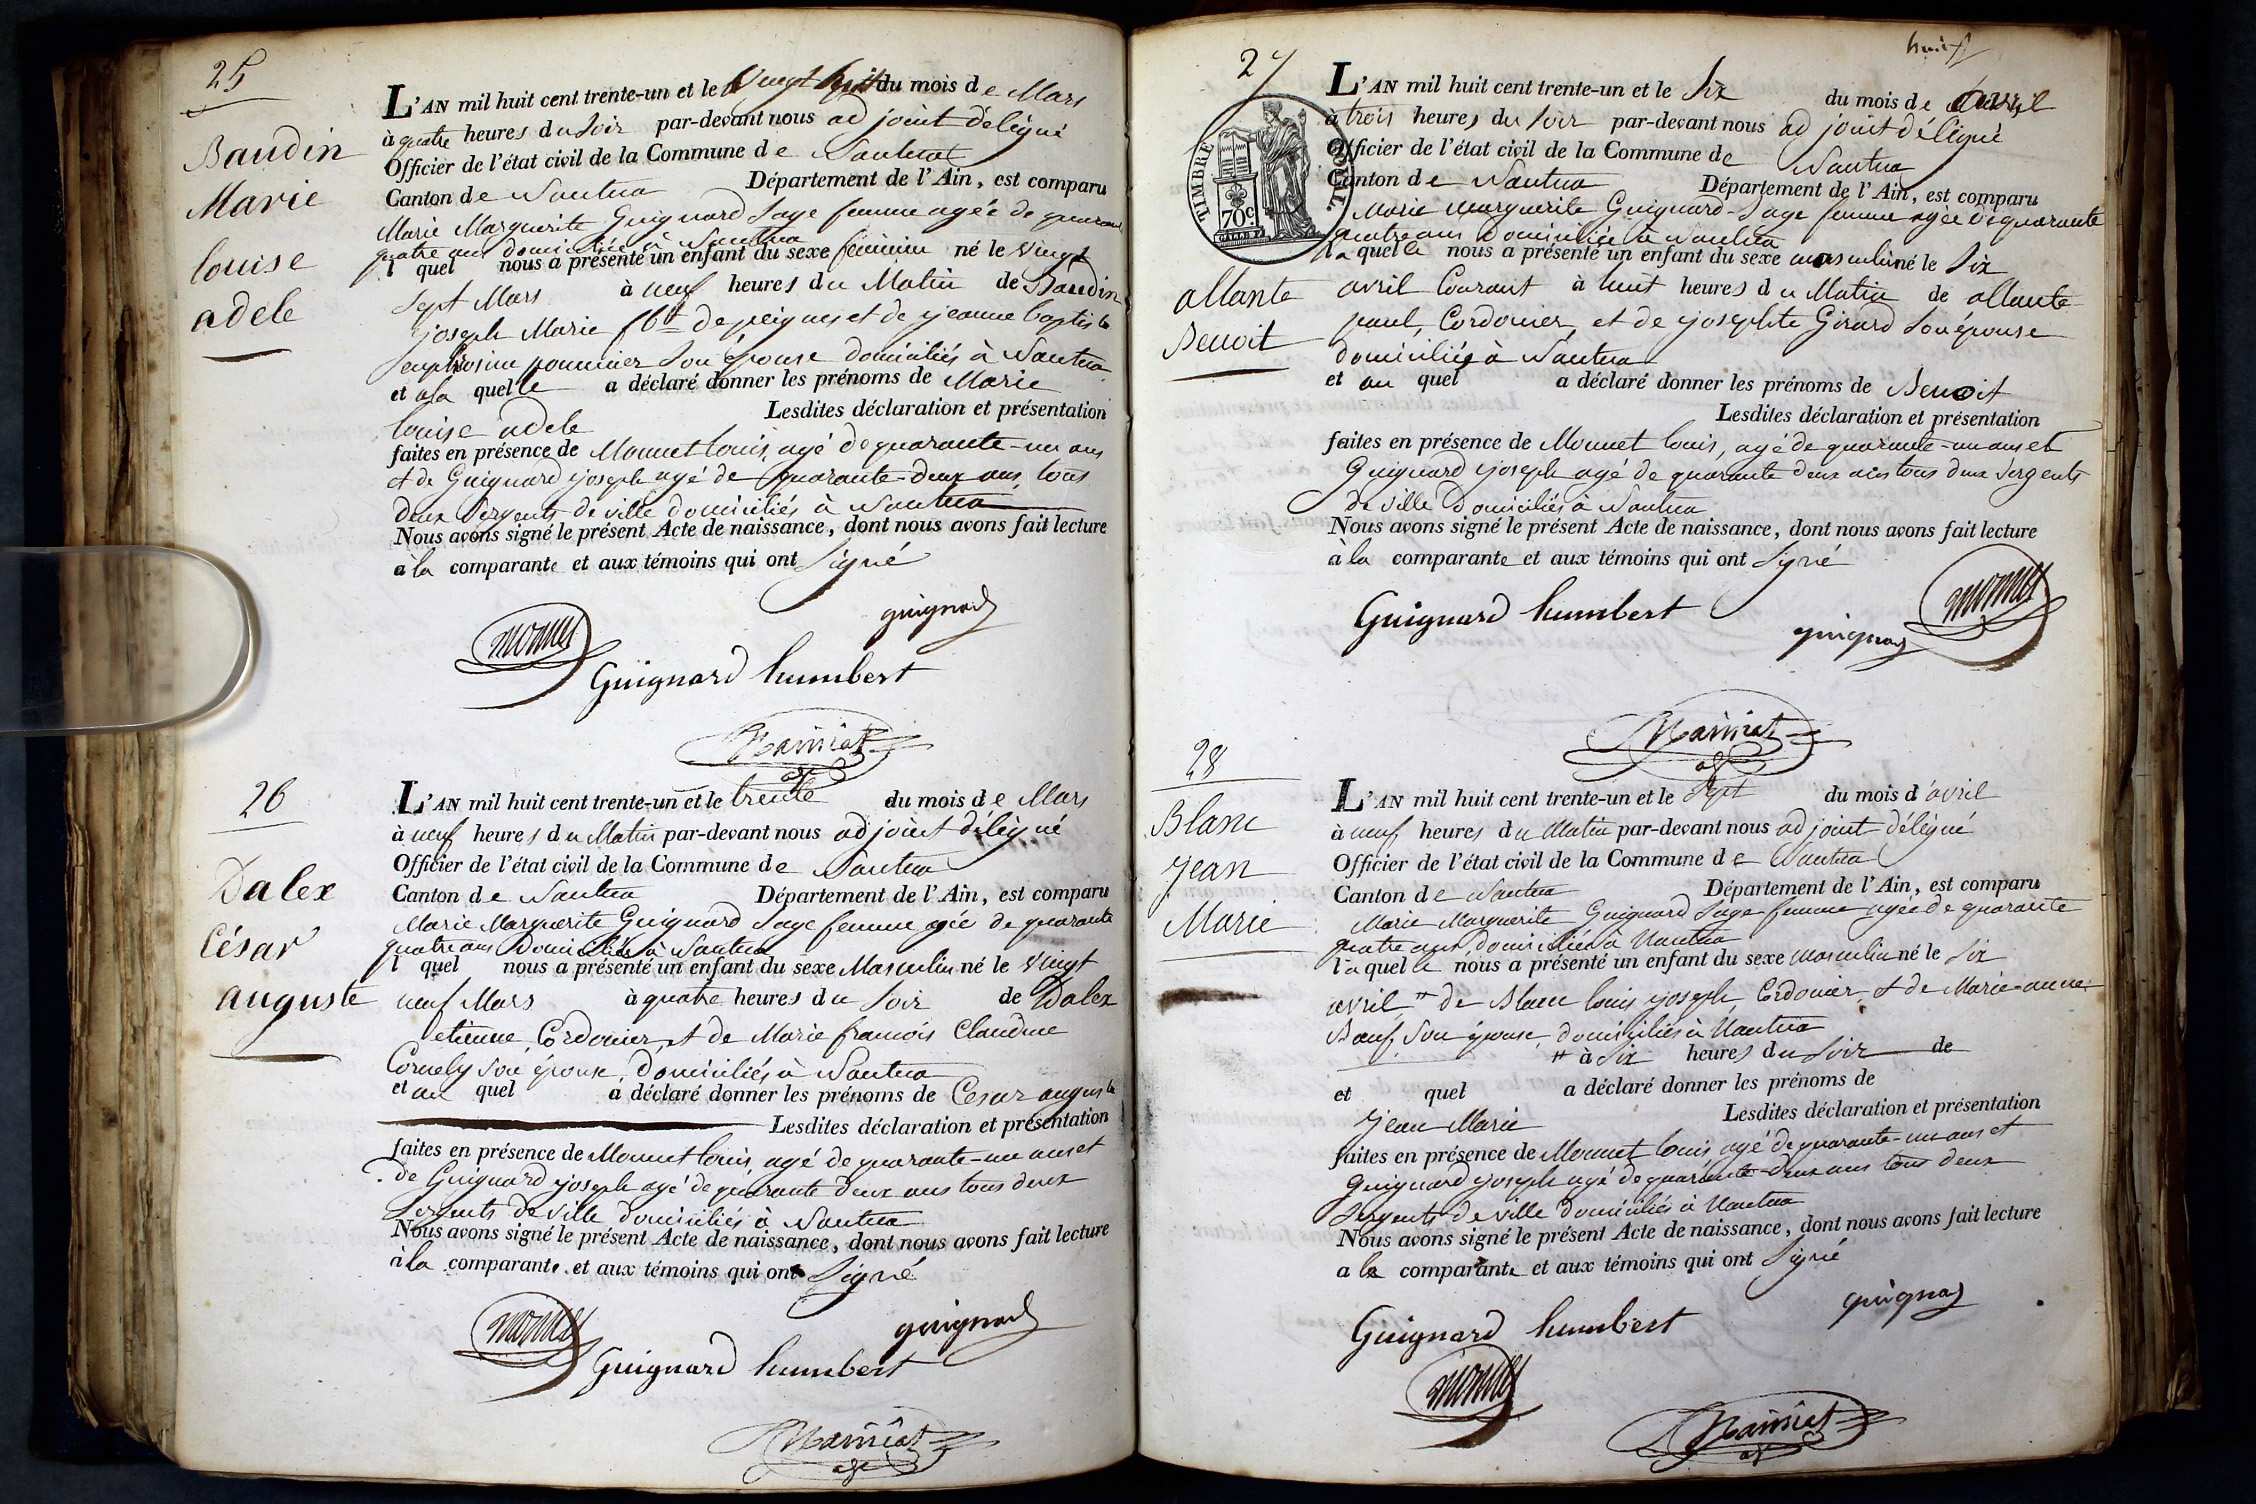 25
Baudin
Marie
louise
adele
L'AN mil huit cent trente-un et le Vingt huit du mois de Mars
à quatre heures du Soir par-devant nous adjoint délégué
Officier de l'état civil de la Commune de Nantua
Canton de Nantua Département de l'Ain, est comparu
Marie Marguerite Guignard Sage femme agée de quarante
quatre ans domiciliée à Nantua
l quel nous a présenté un enfant du sexe féminin né le vingt
Sept Mars à neuf heures du Matin de Baudin
joseph Marie fbt de peignes et de jeanne baptiste
Son épouse domiciliés à Nantua
et a la quelle a déclaré donner les prénoms de Marie
louise adele Lesdites déclaration et présentation
faites en présence de Monnet louis, agé de quarante-un ans
et de Guignard joseph agé de quarante-deux ans, tous
deux Sergents de ville domiciliés à Nantua
Nous avons signé le présent Acte de naissance, dont nous avons fait lecture
à la comparante et aux témoins qui ont Signé
guignard
monnet
Guignard humbert
26
Dalex
César
auguste
L'AN mil huit cent trente-un et le trente du mois de Mars
à neuf heures du Matin par-devant nous adjoint délégué
Officier de l'état civil de la Commune de Nantua
Canton de Nantua Département de l'Ain, est comparu
Marie Marguerite Guignard Sage femme agée de quarante
quatre ans domiciliée à Nantua
l quel nous a présenté un enfant du sexe Masculin né le vingt
neuf Mars à quatre heures du Soir de Dalex
etienne, Cordonier, et de Marie francois Claudine
Cornely Son épouse, domiciliés à Nantua
et au quel a déclaré donner les prénoms de Cesar auguste
Lesdites déclaration et présentation
faites en présence de Monnet louis, agé de quarante-un ans et
de Guignard joseph agé de quarante deux ans tous deux
Sergents de ville domiciliés à Nantua
Nous avons signé le présent Acte de naissance, dont nous avons fait lecture
à la comparante et aux témoins qui ont Signé
monnet
guignard
Guignard humbert
huit
27
TIMBRE ROYAL
70c
allante
Benoit
L'AN mil huit cent trente-un et le Six du mois de avril
à trois heures du Soir par-devant nous adjoint délégué
Officier de l'état civil de la Commune de Nantua
Canton de Nantua Département de l'Ain, est comparu
Marie Marguerite Guignard Sage femme agée de quarante
quatre ans domiciliée à Nantua
la quelle nous a présenté un enfant du sexe masculin né le Six
avril Courant à huit heures du Matin de allante
paul, Cordonier, et de josephte Girard Son épouse
domiciliés à Nantua
et au quel a déclaré donner les prénoms de Benoit
Lesdites déclaration et présentation
faites en présence de Monnet louis, agé de quarante-un ans et
Guignard joseph agé de quarante deux ans tous deux Sergents
de ville domiciliés à Nantua
Nous avons signé le présent Acte de naissance, dont nous avons fait lecture
à la comparante et aux témoins qui ont Signé
Guignard humbert
guignard
monnet
28
Blanc
Jean
Marie
L'AN mil huit cent trente-un et le Sept du mois d'avril
à neuf heures du Matin par-devant nous adjoint délégué
Officier de l'état civil de la Commune de Nantua
Canton de Nantua Département de l'Ain, est comparu
Marie Marguerite Guignard Sage femme agée de quarante
quatre ans domiciliée à Nantua
la quelle nous a présenté un enfant du sexe masculin né le Six
avril # de Blanc louis joseph, Cordonier, et de Marie-anne
Bœuf, Son épouse, domiciliés à Nantua
# à Six heures du Soir de
et quel a déclaré donner les prénoms de
Jean Marie Lesdites déclaration et présentation
faites en présence de Monnet louis, agé de quarante-un ans et
Guignard joseph agé de quarante-deux ans tous deux
Sergents de ville domiciliés à Nantua
Nous avons signé le présent Acte de naissance, dont nous avons fait lecture
a la comparante et aux témoins qui ont Signé
guignard
Guignard humbert
monnet